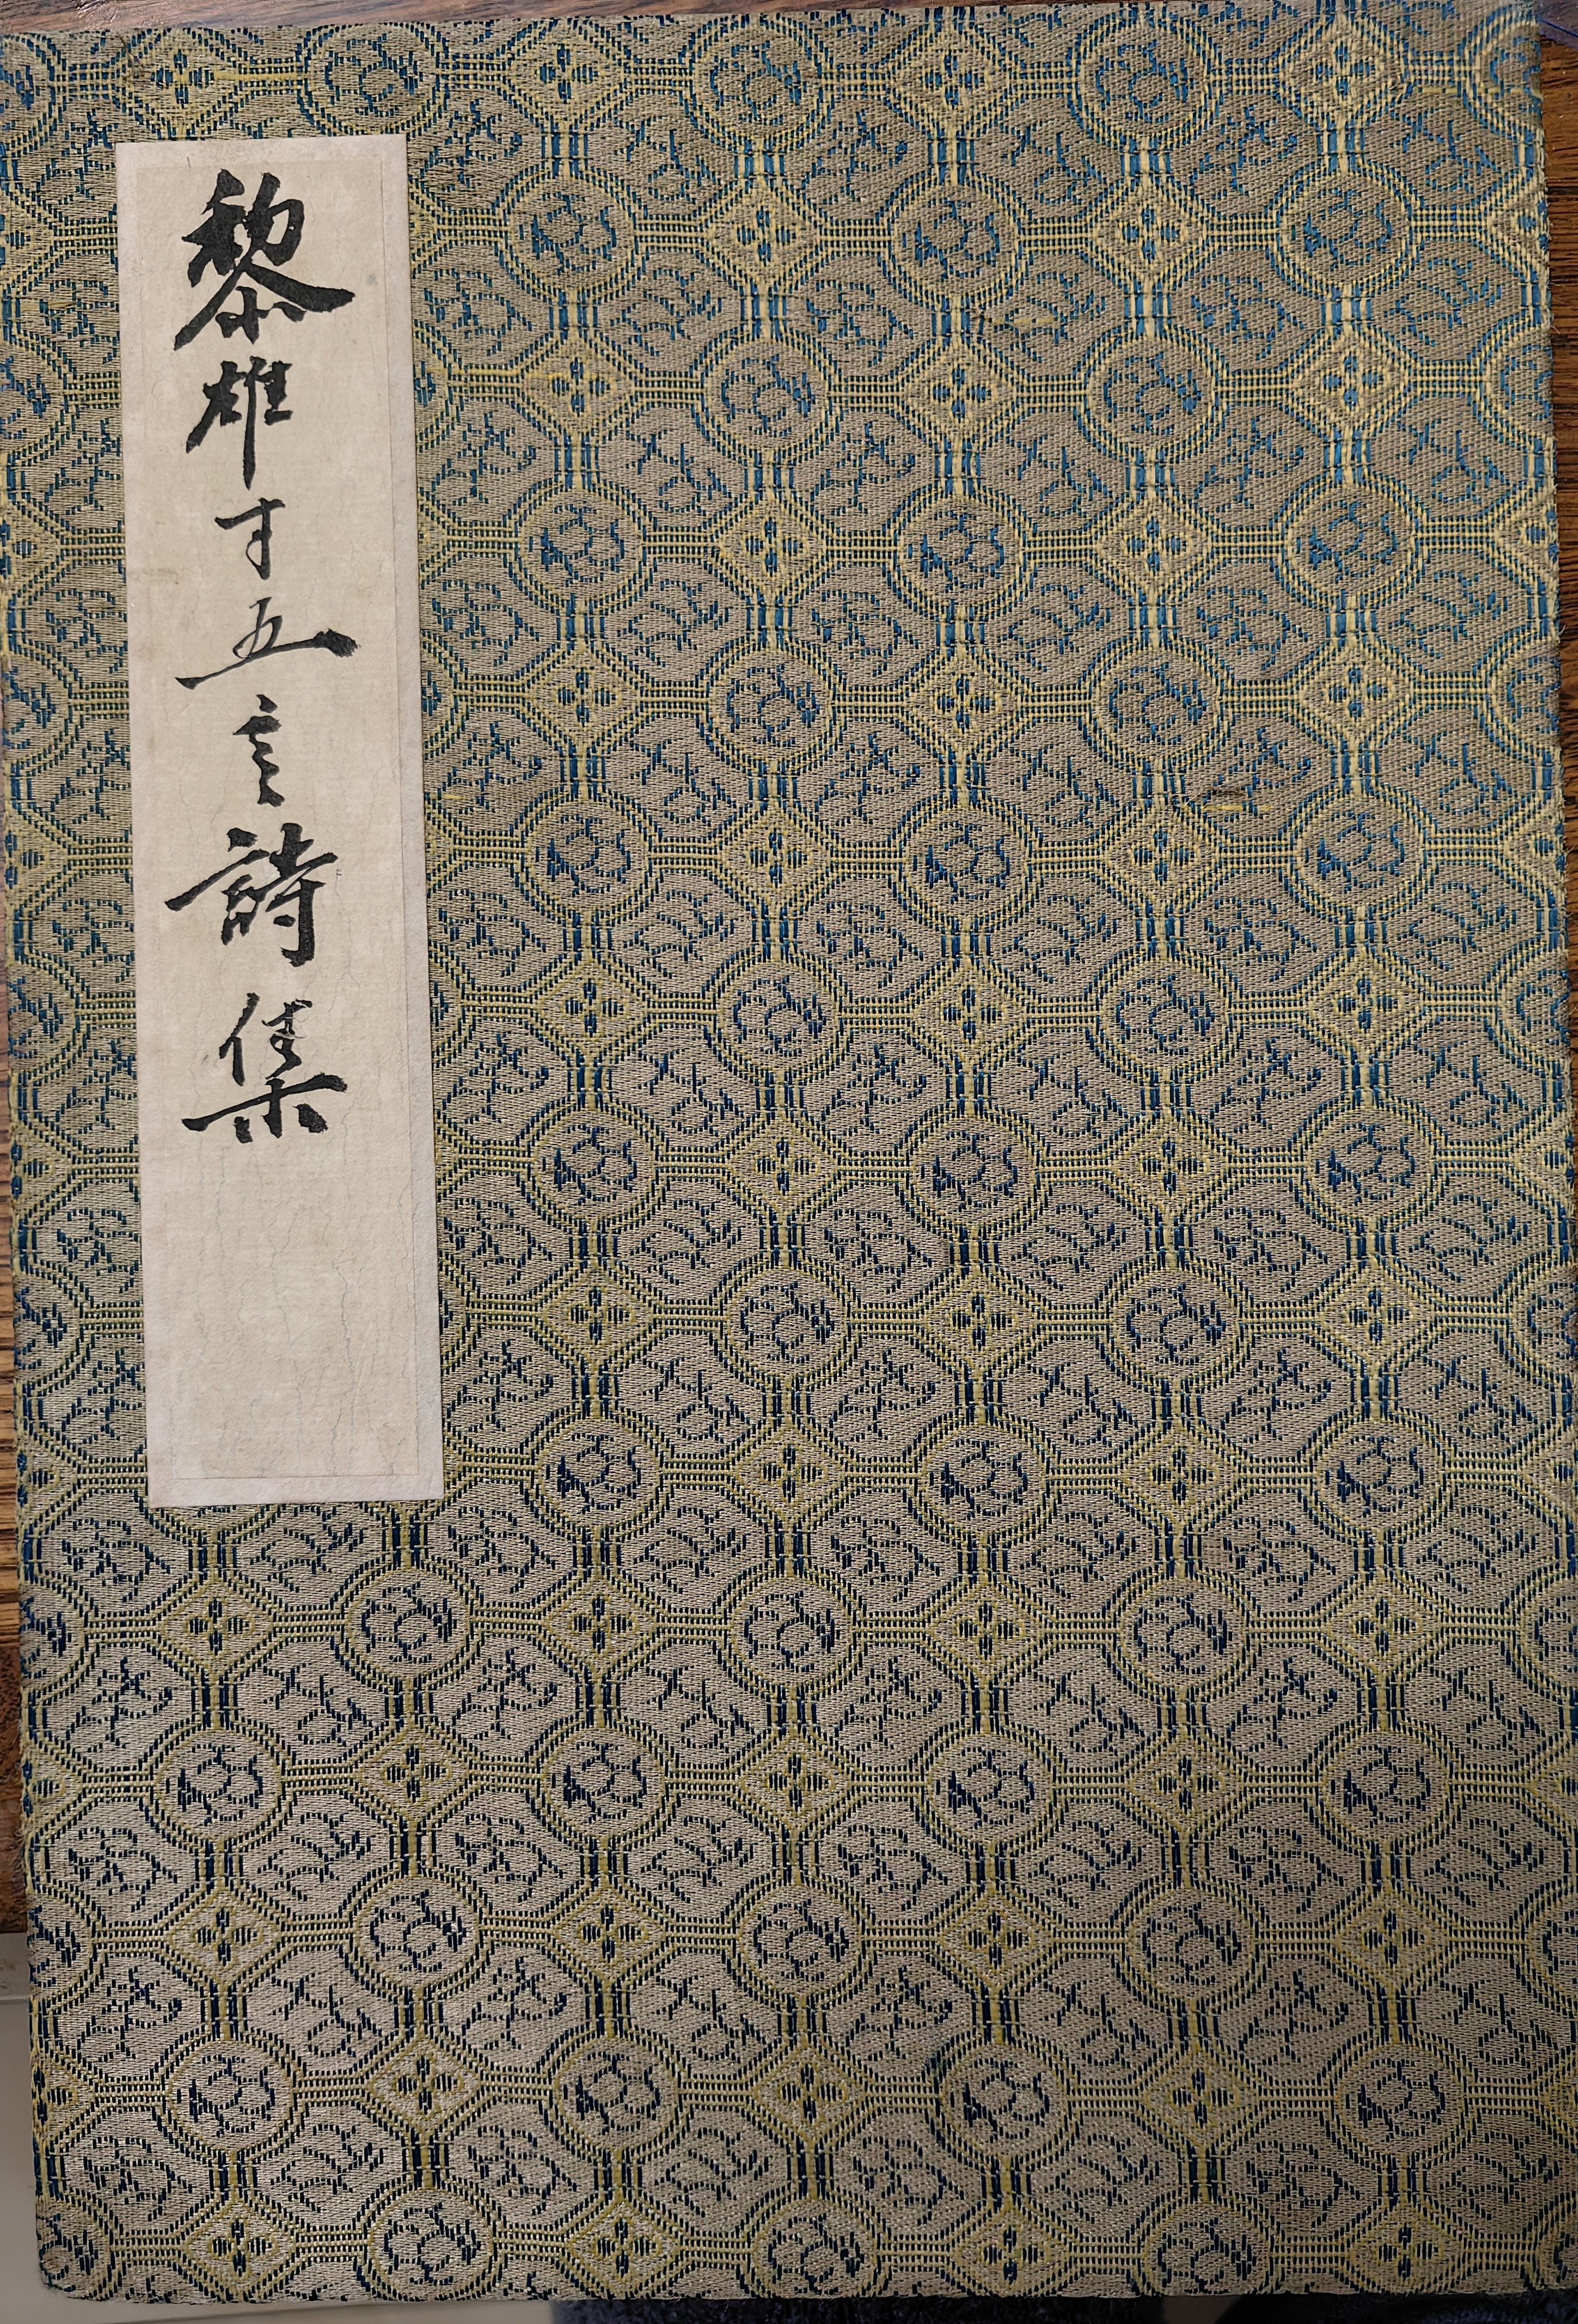 黎雄才五言詩集